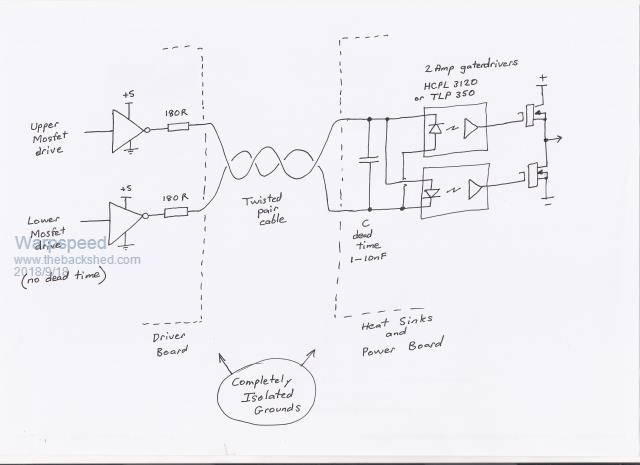 2 Amp gatedrivers
HCPL 3120
or TLP 350
+5
180R
Upper
Mosfet
drive
+
+5
180R
Lower
Mosfet
drive
(no dead time)
Warpspeed
www.thebackshed.com
2018/9/18
Twisted
pair
cable
C
dead
time
1-10nF
Driver
Board
Heat Sinks
and
Power Board
Completely
Isolated
Grounds